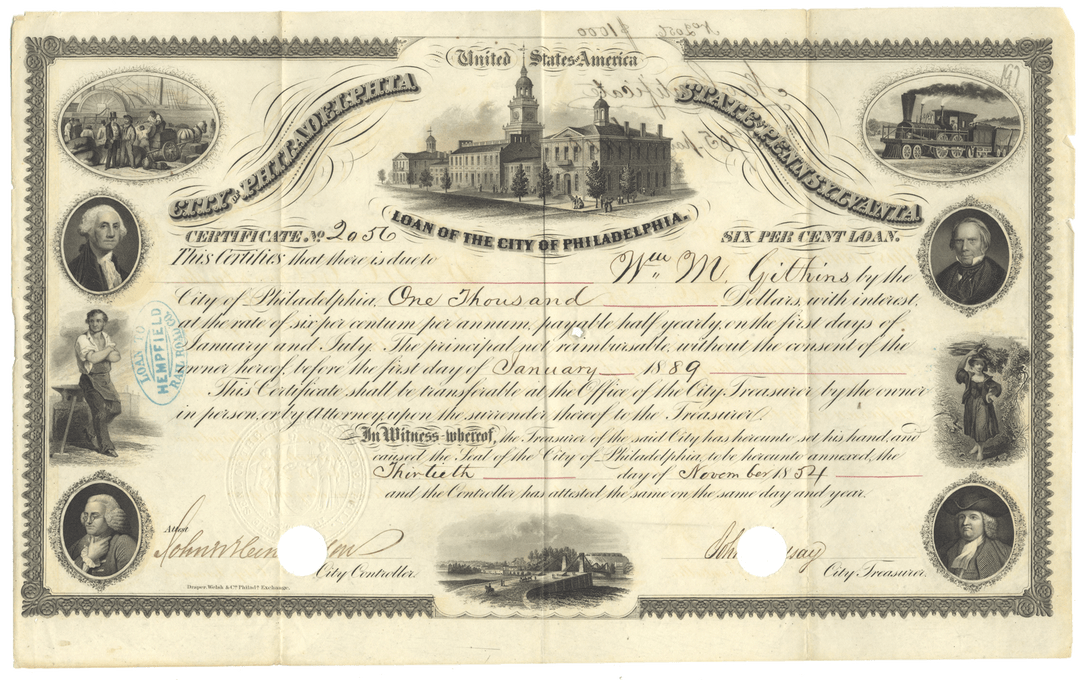 United States America
CITY OF PHILADELPHIA
STATE OF PENNSYLVANIA
LOAN OF THE CITY OF PHILADELPHIA.
CERTIFICATE. No 2056
SIX PER CENT LOAN.
This Certifies that there is due to
Wm M. Gitkins by the
City of Philadelphia, One Thousand Dollars, with interest,
at the rate of six per centum per annum, payable half yearly, on the first days of
January and July. The principal not reimbursable, without the consent of the
owner hereof, before the first day of January 1889
This Certificate shall be transferable at the Office of the City Treasurer by the owner
in person, or by Attorney, upon the surrender thereof to the Treasurer.
In Witness whereof, the Treasurer of the said City has hereunto set his hand, and
caused the Seal of the City of Philadelphia, to be hereunto annexed, the
Thirtieth day of November 1854
and the Controller has attested the same on the same day and year.
LOAN TO
HEMPFIELD
RAIL ROAD CO.
Attest
City Controller.
John
City Treasurer.
Draper, Welsh & Co. Philada. Exchange.
No 2056
$1000
Certificate